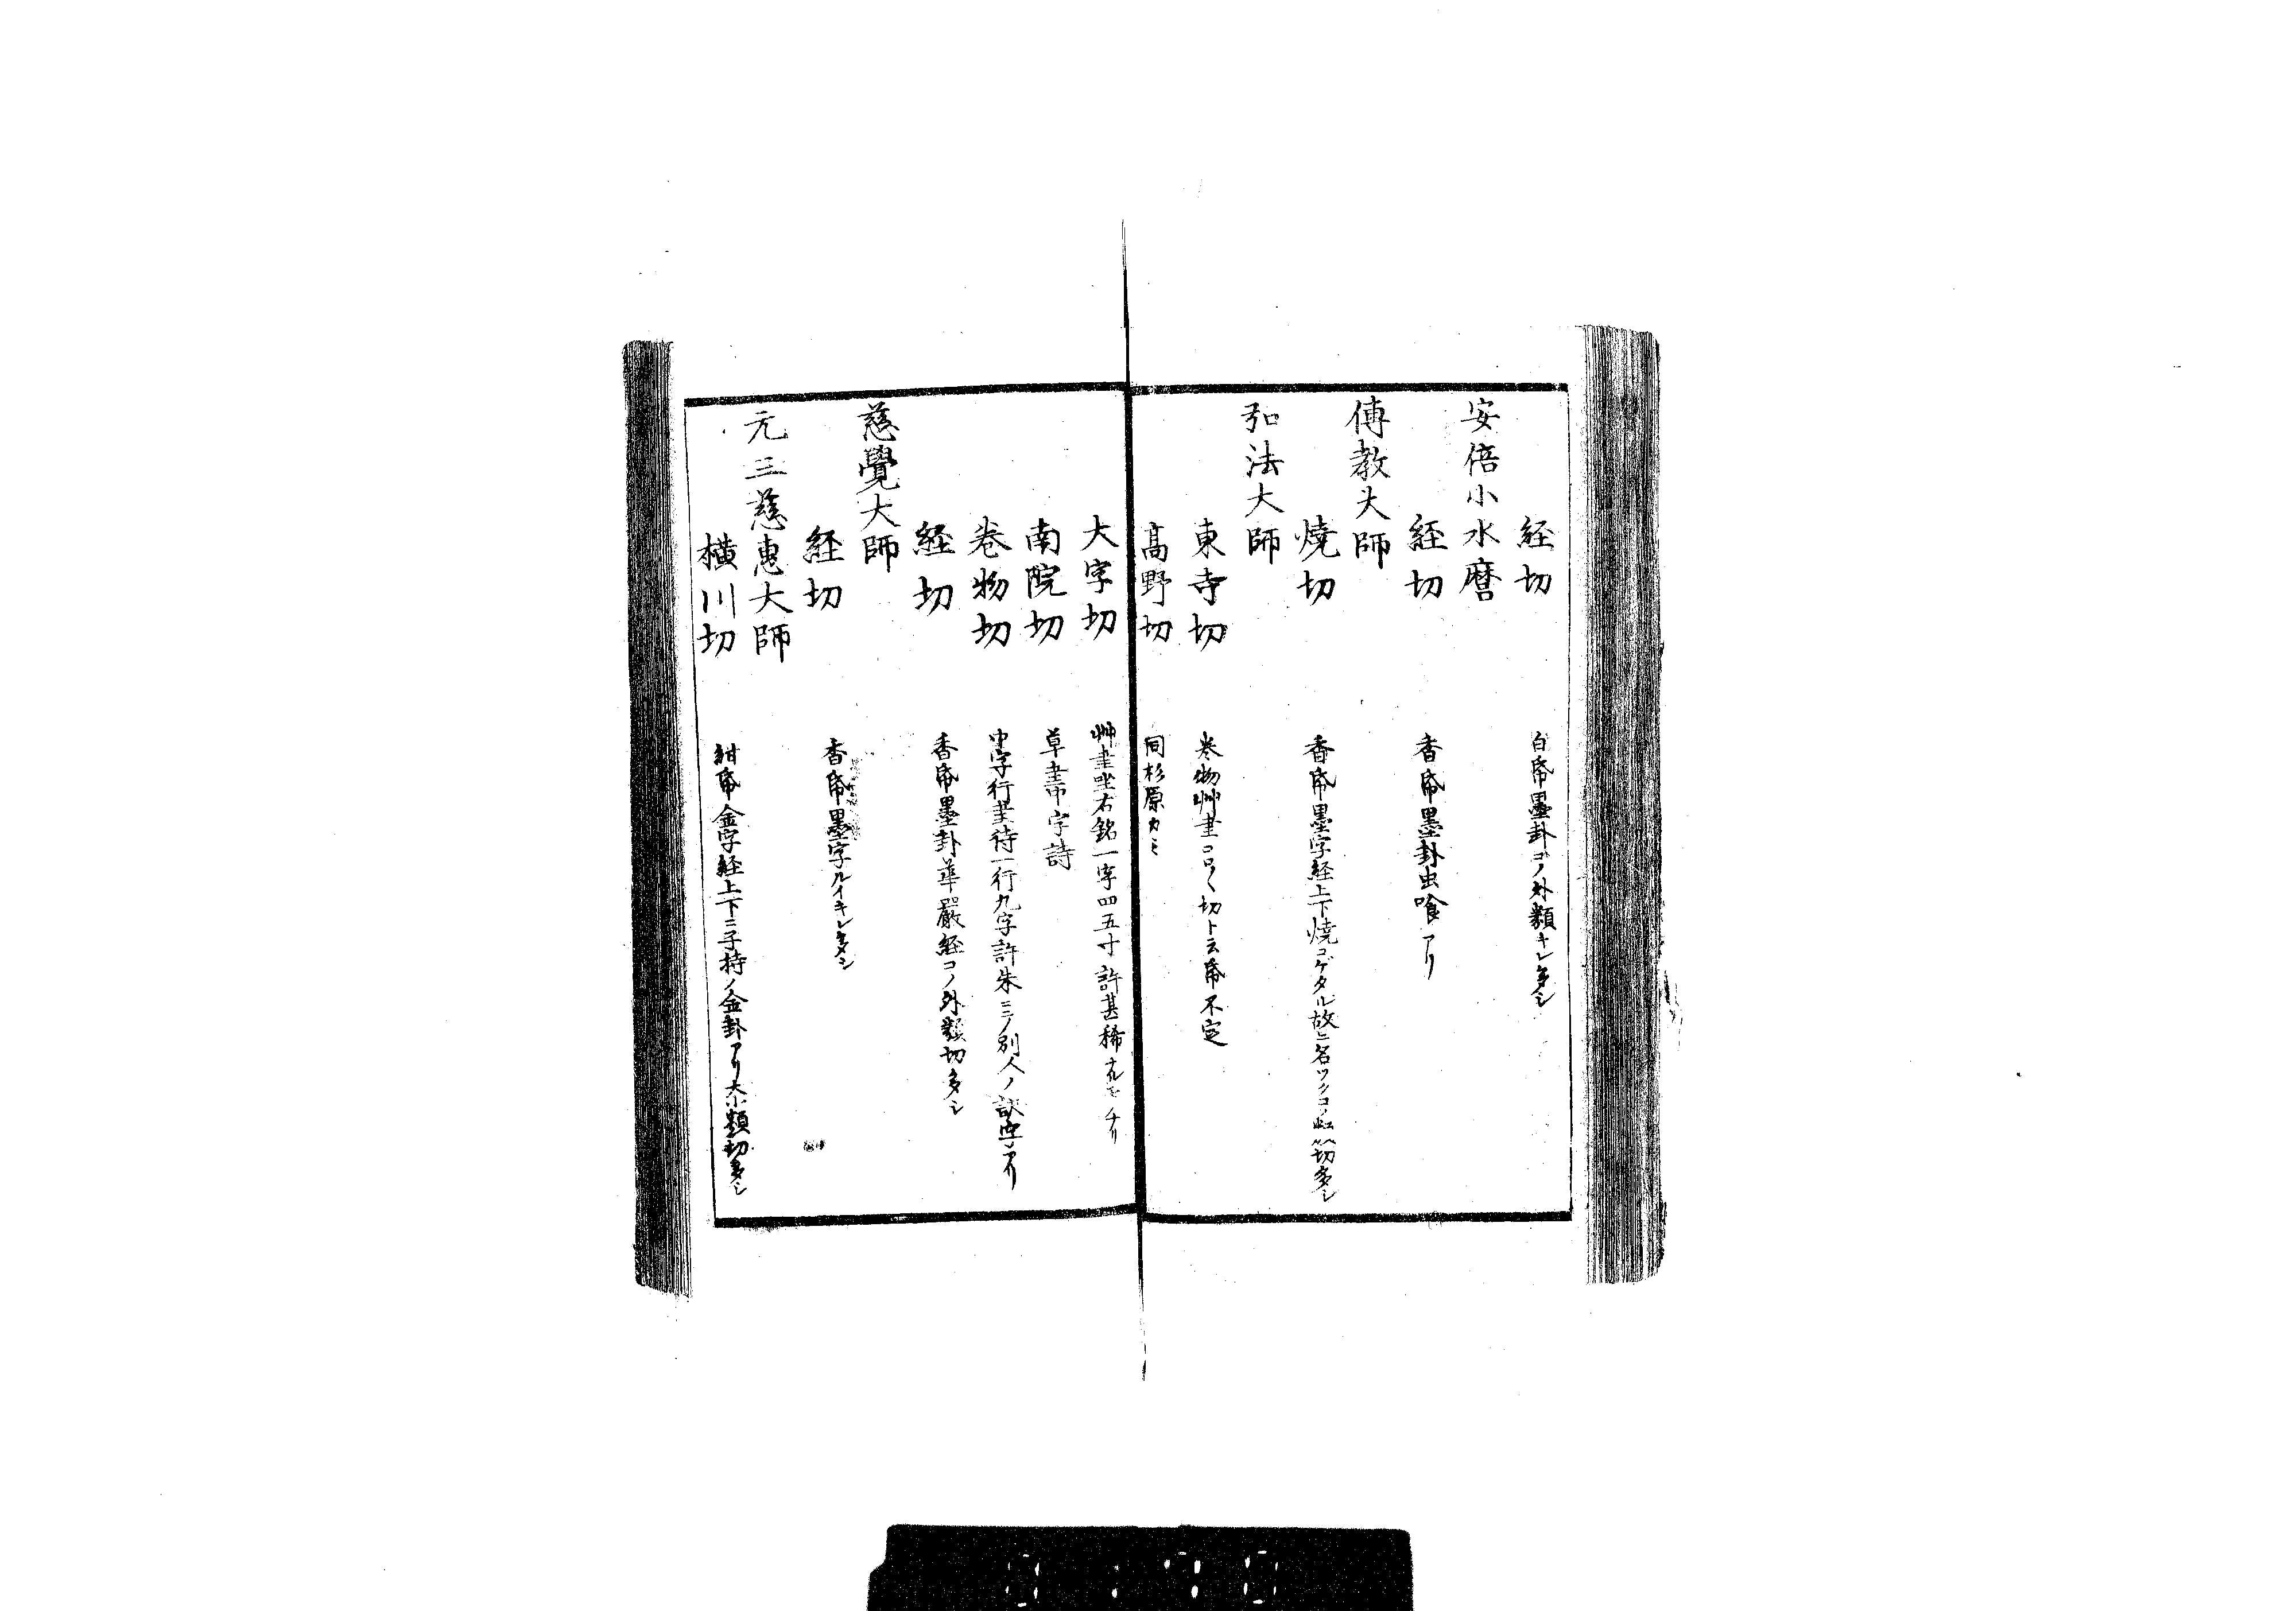 経切　白帋墨卦コノ外類キレ多シ
安倍小水麿
経切　香帋墨卦虫喰アリ
傳教大師
焼切　香帋墨字経上下焼コゲタル故ニ名ツクコノ切多シ
弘法大師
東寺切　巻物艸書コロ〱切ト云帋不定
髙野切　同杉原カミ
大字切　艸書坐右銘一字四五寸許甚稀ナルモノナリ
南院切　草書中字詩
巻物切　中字行書待一行九字許朱ニテ別人ノ訳字アリ
経切　香帋墨卦華嚴経コノ外類切多シ
慈覺大師
経切　香帋墨字ルイキレ多シ
元三慈惠大師
横川切　紺帋金字経上下ニ子持ノ金卦アリ大小類切多シ